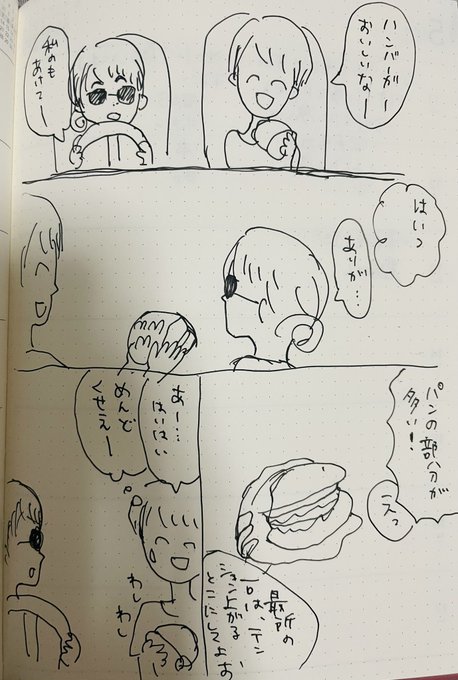 ハンバーガー
おいしいなー
私のも
あけてー
はいっ
ありが…
パンの部分が
多い!
えっ
最所の
一口は、テン
ション上がる、
とこにしてよぉ
あー…
はいはい
めんど
くせえー
わし
わし